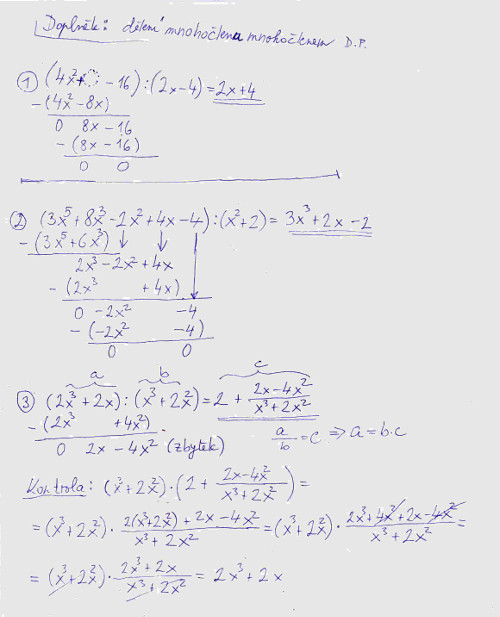 Doplněk: dělení mnohočlena mnohočlenem D.P.
① (4x² - 16) : (2x - 4) = 2x + 4
- (4x² - 8x)
0 8x - 16
- (8x - 16)
0 0
② (3x⁵ + 8x³ - 2x² + 4x - 4) : (x² + 2) = 3x³ + 2x - 2
- (3x⁵ + 6x³)
2x³ - 2x² + 4x
- (2x³ + 4x)
0 - 2x² - 4
- (-2x² - 4)
0 0
a b c
③ (2x³ + 2x) : (x³ + 2x²) = 2 + (2x - 4x²)/(x³ + 2x²)
- (2x³ + 4x²)
0 2x - 4x² (zbytek) a/b = c ⇒ a = b·c
Kontrola: (x³ + 2x²) · (2 + (2x - 4x²)/(x³ + 2x²)) =
= (x³ + 2x²) · (2(x³ + 2x²) + 2x - 4x²)/(x³ + 2x²) = (x³ + 2x²) · (2x³ + 4x² + 2x - 4x²)/(x³ + 2x²) =
= (x³ + 2x²) · (2x³ + 2x)/(x³ + 2x²) = 2x³ + 2x